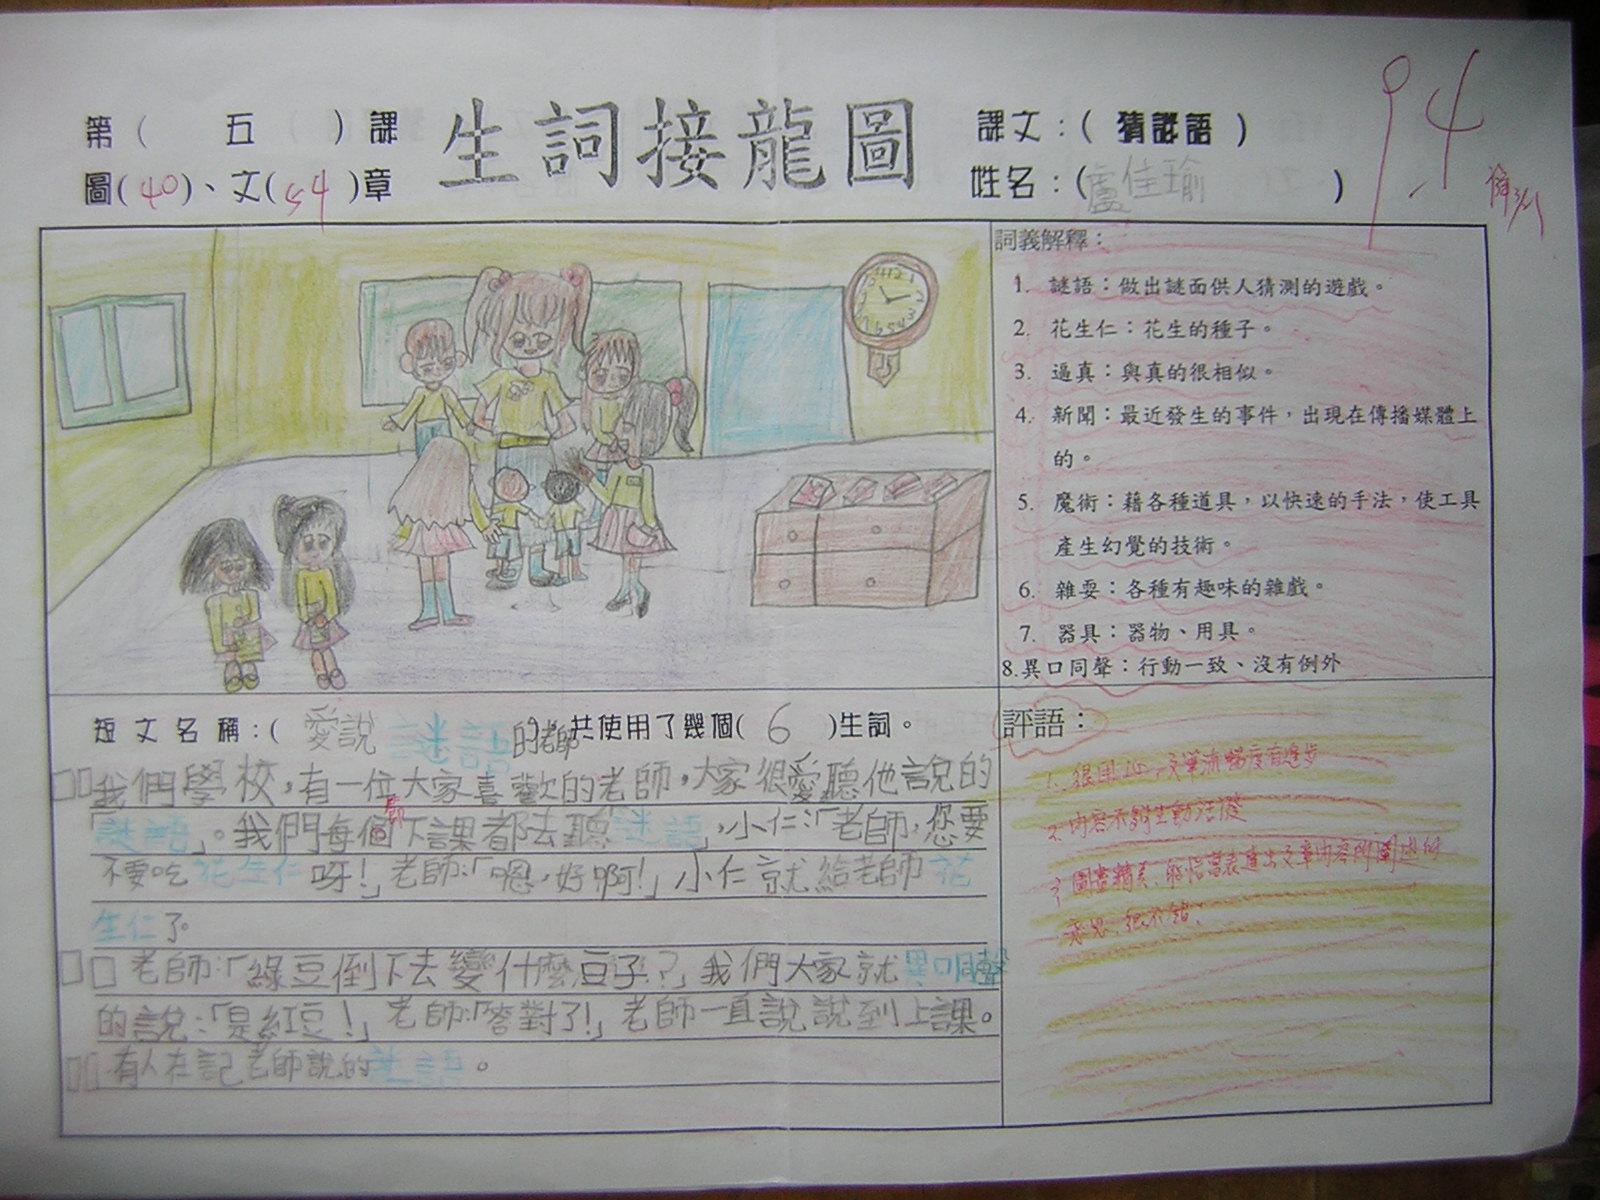 第( 五 )課
生詞接龍圖
課文:( 猜謎語 )
94
圖(40)、文(54)章
姓名:(盧佳瑜 )
詞義解釋:
1. 謎語:做出謎面供人猜測的遊戲。
2. 花生仁:花生的種子。
3. 逼真:與真的很相似。
4. 新聞:最近發生的事件,出現在傳播媒體上
的。
5. 魔術:藉各種道具,以快速的手法,使工具
產生幻覺的技術。
6. 雜耍:各種有趣味的雜戲。
7. 器具:器物、用具。
8.異口同聲:行動一致、沒有例外
短文名稱:( 愛說謎語的老師 共使用了幾個( 6 )生詞。
我們學校,有一位大家喜歡的老師,大家很愛聽他說的
「謎語」。我們每個下課都去聽「謎語」,小仁:「老師,您要
不要吃花生仁呀!」老師:「嗯,好啊!」小仁就給老師花
生仁了。
老師:「綠豆倒下去變什麼豆子?」我們大家就異口同聲
的說:「是紅豆!」老師:「答對了!」老師一直說說到上課。
有人在記老師說的謎語。
評語:
1. 文筆流暢度有進步
2. 內容不夠生動活潑
3. 圖畫精美、能恰當表達出文章內容所
意思、很不錯!